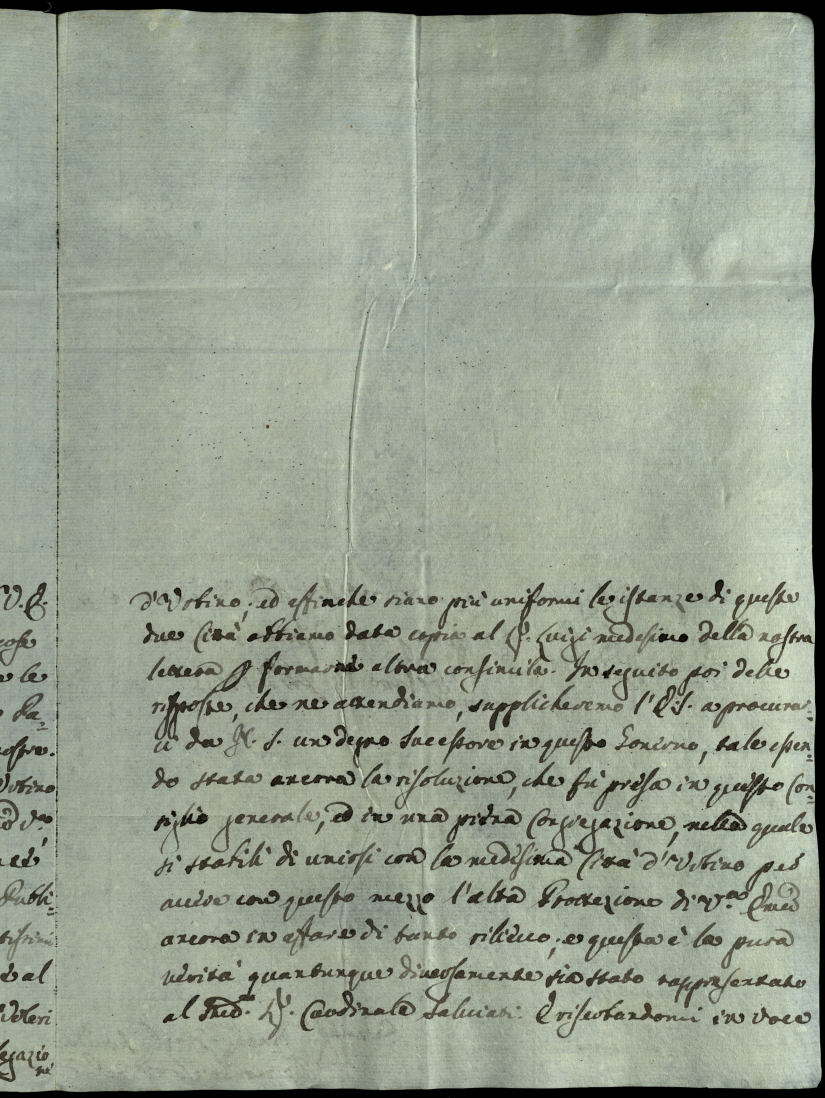 V. E.
gose
a le
Pa=
nostre.
Urbino
Publi=
tissimi
e al
Voleri
legazio
ne
d'Urbino; ed affinche siano più uniformi le istanze di queste
due Città abbiamo data copia al Sig. Luigi medesimo della nostra
lettera p formarne altra consimile. In seguito poi delle
risposte, che ne attendiamo, supplicheremo l'E.S. a procurar=
ci da N. S. un degno Successore in questo Governo, tale essen=
do stata ancora la risoluzione, che fù presa in questo Con=
siglio generale, ed in una piena Congregazione, nella quale
si stabilì di unirsi con la medesima Città d'Urbino per
avere con questo mezzo l'alta Protezione di V.ra Em̃a
ancora in affare di tanto rilievo; e questa è la pura
verità quantunque diversamente sia stato rappresentato
al Sig. Cardinale Salviati. E riserbandomi in voce